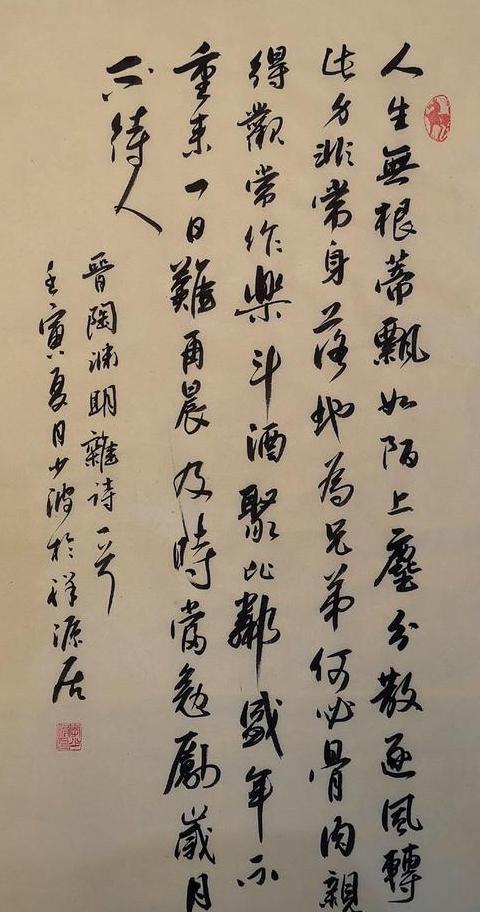 人生無根蒂飄如陌上塵分散逐風轉
此非常身落地為兄弟何必骨肉親
得歡常作樂斗酒聚比鄰盛年不
重來一日難再晨及時當勉勵歲月
不待人
晉陶淵明雜詩一首
壬寅夏月少波於祥源居